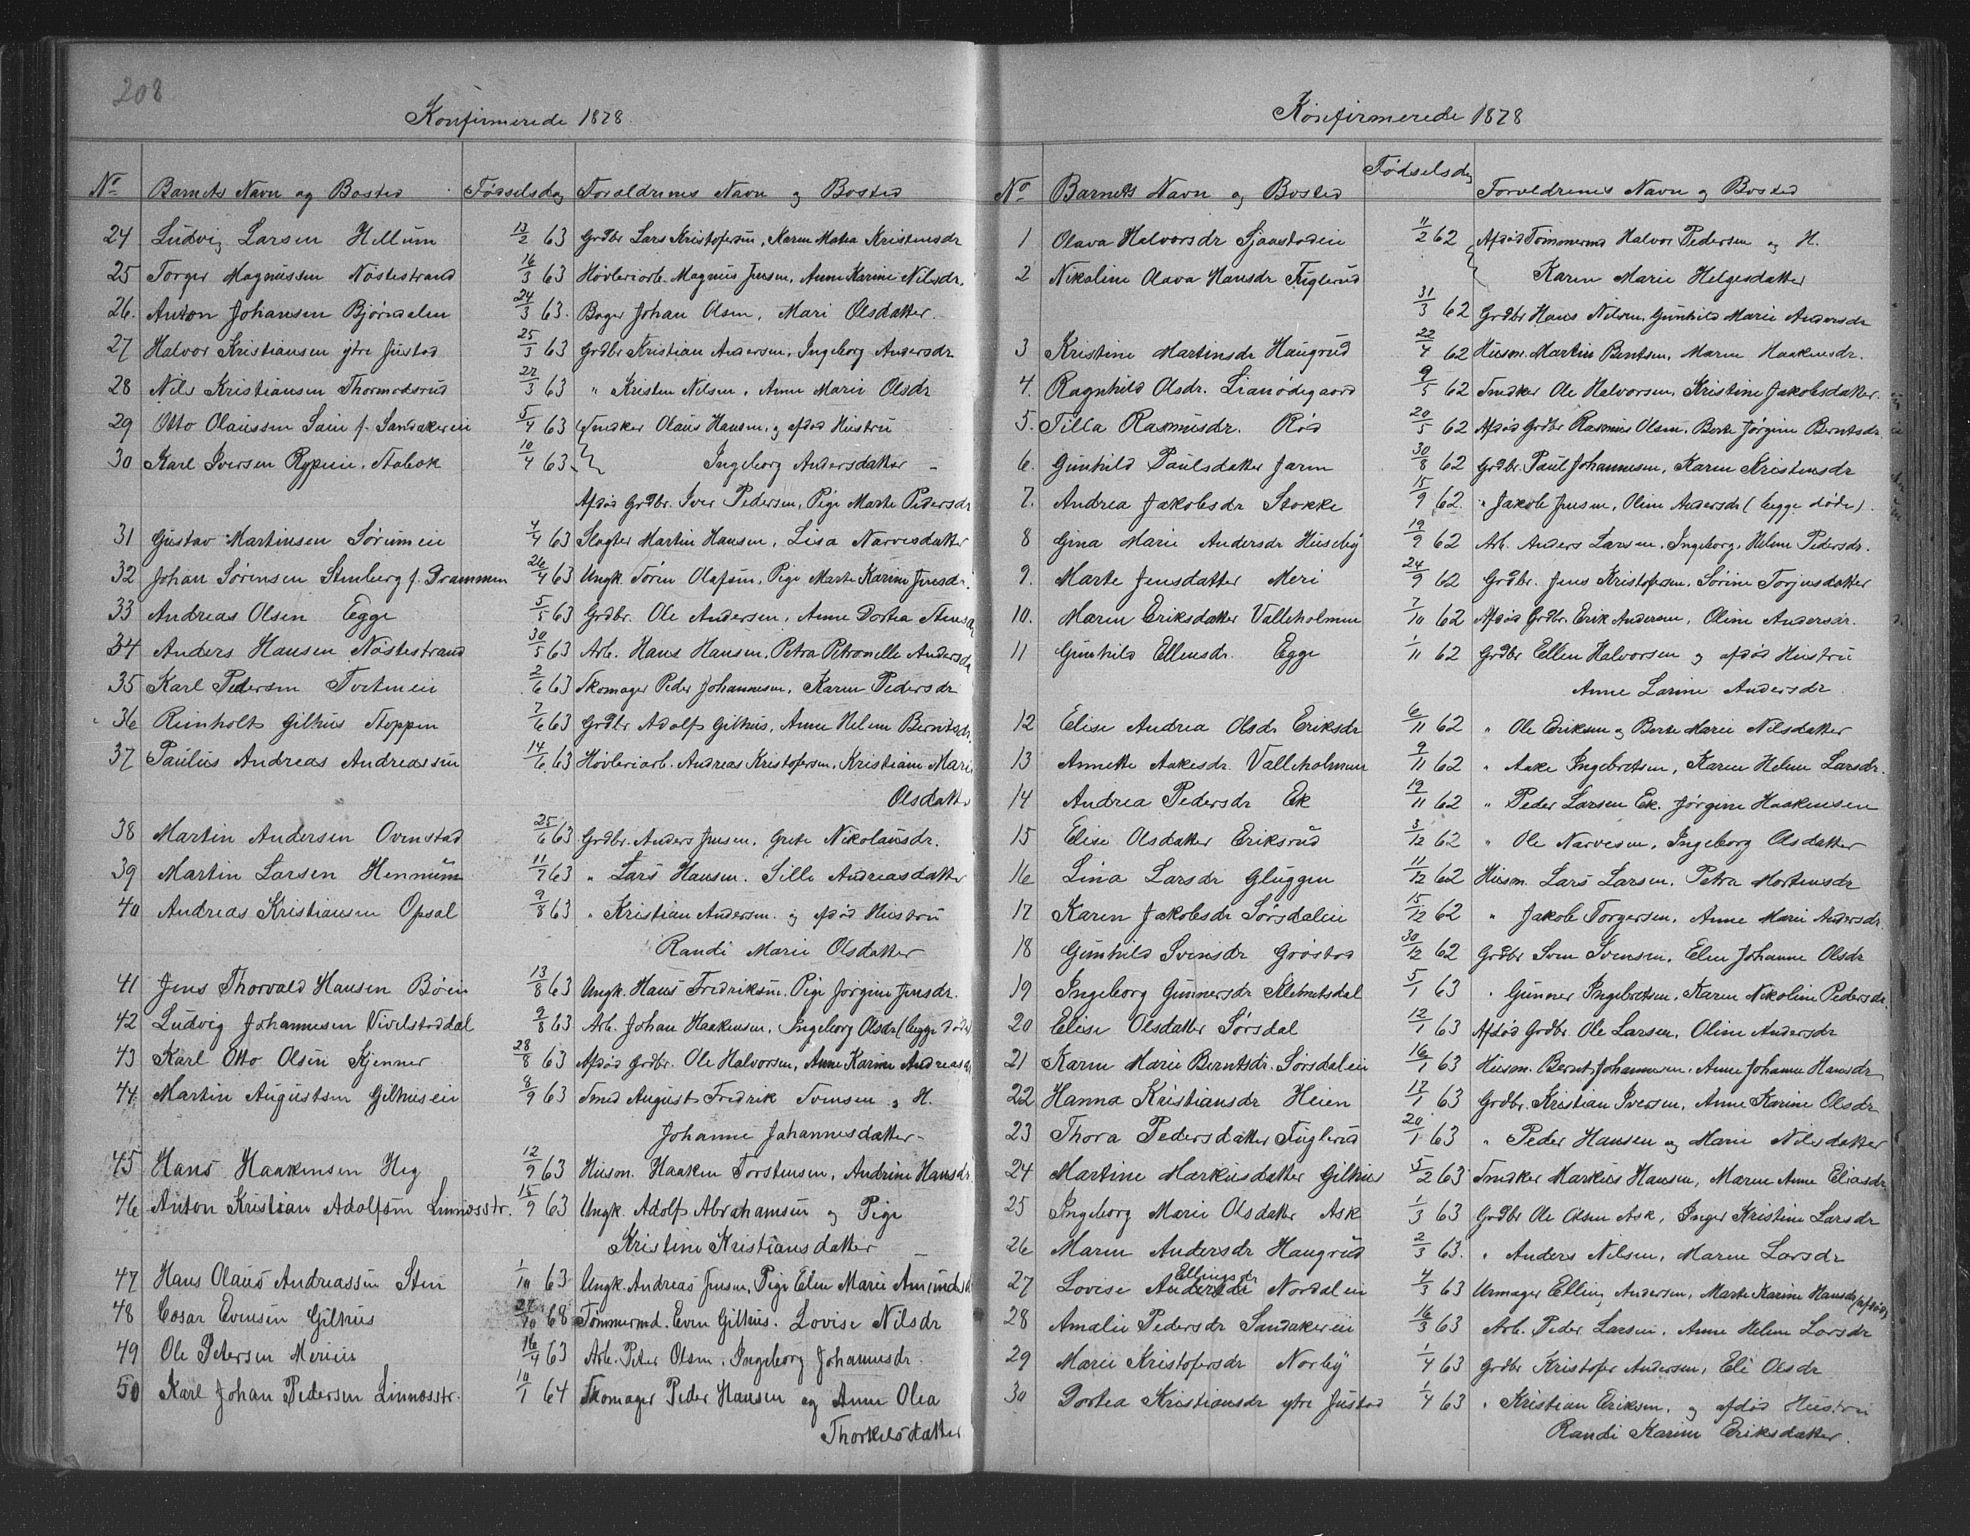 208
Konfirmerede 1878.
No Barnets Navn og Bosted Fødselsdag Foræeldrenes Navn og Bosted
24 Ludvig Larsen Hellum 13/2 63 Grdbr Lars Kristofersen, Karen Matea Kristensdr
25 Torger Magnussen Nøstestrand 16/3 63 Høvleriarb. Magnus Jensen, Anne Karine Nilsdr.
26. Anton Johansen Bjørndalen 24/3 63. Bager Johan Olsen, Mari Olsdatter.
27 Halvor Kristiansen ytre Justad 25/3 63 Grdbr Kristian Andersen, Ingeborg Andersdr
28 Nils Kristiansen Thormodsrud 27/3 63 " Kristen Nilsen, Anne Marie Olsdr
29 Otto Olaussen Saue f. Sandakereie 5/4 63 Snedker Olaus Hansen, og afdød Hustru
30 Karl Iversen Rypeie, Stabæk 10/4 63 Ingeborg Andersdatter
Afdød Grdbr. Iver Pedersen, Pige Marte Pedersdr
31 Gustav Martinsen Sørumeie 4/4 63 Slagter Martin Hansen, Lisa Narvesdatter
32 Johan Sørensen Stenberg f. Drammen 26/4 63 Ungk. Søren Olafsen, Pige Marte Karine Jensdr.
33 Andreas Olsen Egge 5/5 63 Grdbr. Ole Andersen, Anne Dortea Stensdr
34 Anders Hansen Nøstestrand 30/5 63 Arb. Hans Hansen, Petra Petronelle Andersdr
35 Karl Pedersen Tveteneie 2/6 63 Skomager Peder Johannesen, Karen Pedersdr
36 Reinholt Gilhus Stoppen 7/6 63 Grdbr Adolf Gilhus, Anne Helene Berntsdr.
37 Paulus Andreas Andreassen 14/6 63 Høvleriarb. Andreas Kristofersen, Kristiane Marie
Olsdatter
38 Martin Andersen Ovenstad 25/6 63 Grdbr. Anders Jensen, Grete Nikolausdr.
39 Martin Larsen Hennum 11/7 63 " Lars Hansen. Sille Andreasdatter
40 Andreas Kristiansen Opsal 9/8 63 " Kristian Andersen. og afdød Hustru
Randi Marie Olsdatter
41 Jens Thorvald Hansen Bøen 13/8 63 Ungk. Hans Fredriksen, Pige Jørgine Jensdr.
42 Ludvig Johannesen Vivelstaddal 9/8 63 Arb. Johan Haakensen, Ingeborg Olsdr (begge døde)
43 Karl Otto Olsen Kjenner 28/8 63 Afdød Grdbr. Ole Halvorsen, Anne Karine Andreasdr
44 Martin Augustsen Gilhuseie 8/9 63 Smed August Fredrik Svensen og H.
Johanne Johannesdatter
45 Hans Haakensen Heg 12/9 63 Husm. Haaken Torstensen, Andrine Hansdr
46 Anton Kristian Adolfsen Linnesstr. 15/9 63 Ungk. Adolf Abrahamsen og Pige
Kristine Kristiansdatter
47 Hans Olaus Andreassen Sten 1/10 63 Ungk. Andreas Jensen, Pige Elen Marie Amundsdr
48 Cesar Evensen Gilhus 27/10 68 Tømmermd. Even Gilhus. Lovise Nilsdr
49 Ole Petersen Merieie 16/4 63 Arb. Peter Olsen, Ingeborg Johannesdr.
50 Karl Johan Pedersen Linnesstr. 10/1 64 Skomager Peder Hansen og Anne Olea
Thorkelsdatter
Konfirmerede 1878
No Barnets Navn og Bosted Fødselsdag Foreldrenes Navn og Bosted
1 Olava Halvorsdr Sjaastadeie 11/2 62 Afdød Tømmermd Halvor Pedersen og H.
2 Nikoline Olava Hansdr Fuglerud Karen Marie Helgesdatter
31/3 62 Grdbr Hans Nilsen, Gunhild Marie Andersdr
3 Kristine Martinsdr Haugrud 22/4 62 Husm. Martin Bentsen, Maren Haakensdr.
4. Ragnhild Olsdr. Lianødegaard 9/5 62 Snedker Ole Halvorsen, Kristine Jakobsdatter.
5. Tilla Rasmusdr. Rød 20/5 62 Afdød Grdbr Rasmus Olsen. Berte Jørgine Berntsdr.
6. Gunhild Paulsdatter Jaren 30/8 62 Grdbr. Paul Johannesen, Karen Kristensdr
7. Andrea Jakobsdr Stokke 15/9 62. " Jakob Jensen, Oline Andersdr (begge døde).
8 Gina Marie Andersdr Huseby 19/9 62 Arb. Anders Larsen. Ingeborg Helene Pedersdr.
9. Marte Jensdatter Meri 24/9 62 Grdbr. Jens Kristofersen, Sørine Torjusdatter
10. Maren Eriksdatter Valleholmen 7/10 62 Afdød Grdbr. Erik Andersen, Oline Andersdr.
11 Gunhild Ellensdr. Egge 1/11 62 Grdbr Ellen Halvorsen og afdød Hustru
Anne Larine Andersdr.
12 Elise Andrea Olsdr Eriksdr 6/11 62 " Ole Eriksen og Berte Marie Nilsdatter
13 Annette Aakesdr. Valleholmen 9/11 62 " Aake Ingebretsen, Karen Helene Larsdr.
14 Andrea Pedersdr Ek 19/11 62 " Peder Larsen Ek. Jørgine Haakensen
15 Elise Olsdatter Eriksrud 3/12 62 " Ole Narvesen, Ingeborg Olsdatter
16 Lina Larsdr Gluggen 11/12 62 Husm. Lars Larsen. Petra Mortensdr
17 Karen Jakobsdr Sørsdaleie 15/12 62 " Jakob Torgersen, Anne Marie Andersdr
18 Gunhild Svensdr Grøstad 30/12 62 Grdbr Sven Svensen, Elen Johanne Olsdr
19 Ingeborg Gunnersdr Klebretsdal 5/1 63 " Gunner Ingebretsen, Karen Nikoline Pedersdr.
20 Elise Olsdatter Sørsdal 12/1 63 Afdød Grdbr Ole Larsen, Oline Andersdr
21 Karen Marie Berntsdr. Sørsdaleie 16/1 63 Husm. Bernt Johannesen. Anne Johanne Hansdr
22 Hanna Kristiansdr Heien 17/1 63 Grdbr. Kristian Iversen, Anne Karine Olsdr
23 Thora Pedersdatter Fuglerud 20/1 63 " Peder Hansen og Marie Nilsdatter
24 Martine Markusdatter Gilhus 5/2 63 Snedker Markus Hansen, Maren Anne Eliasdr
25 Ingeborg Marie Olsdatter Ask 1/3 63 Grdbr Ole Olsen Ask, Inger Kristine Larsdr
26 Maren Andersdr Haugrud 2/3 63. " Anders Nilsen, Maren Larsdr
Ellingsdr
27 Lovise Andersdr Nordaleie 4/3 63 Urmager Elling Andersen, Marte Karine Hansdr (afdød)
28 Amalie Pedersdr Sandakereie 16/3 63 Arb. Peder Larsen, Anne Helene Larsdr
29 Marie Kristofersdr Norby 1/4 63 Grdbr Kristofer Andersen, Eli Olsdr
30 Dortea Kristiansdr ytre Justad 1/4 63 " Kristian Eriksen, og afdød Hustru
Randi Karine Eriksdatter.